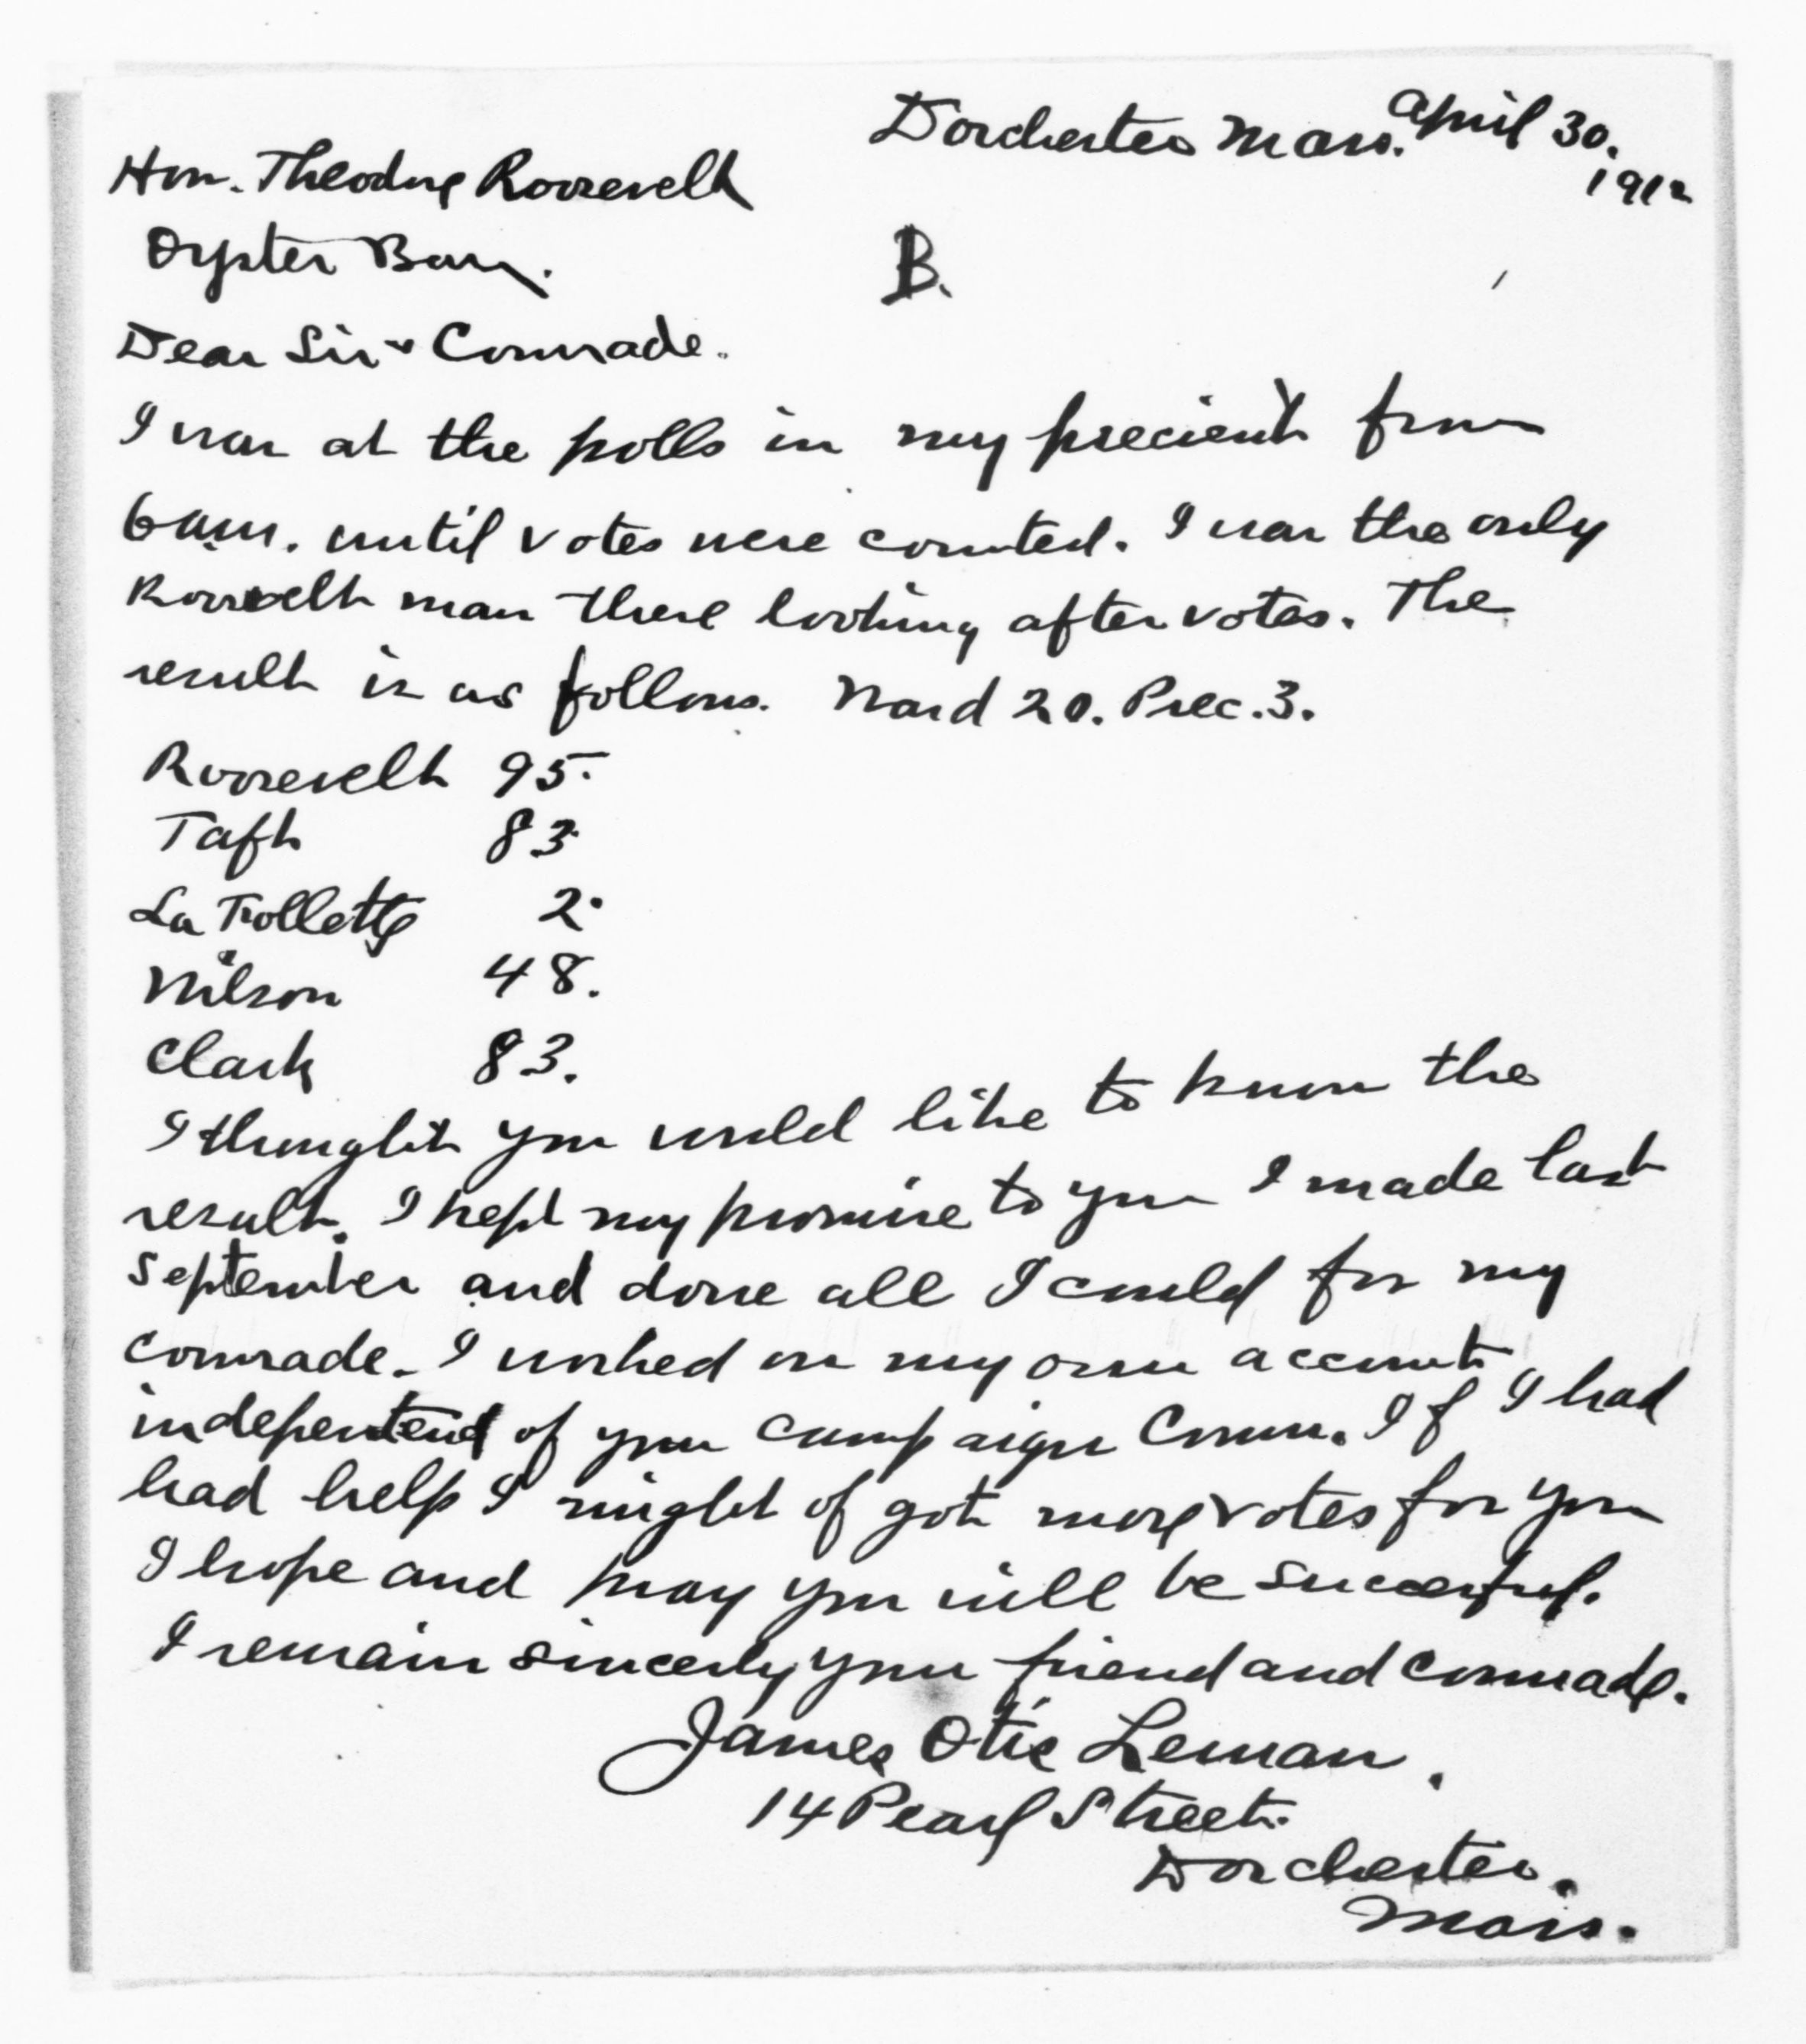 Dorchester Mass. April 30.
1912
Hon. Theodore Roosevelt
Oyster Bay.
B.
Dear Sir & Comrade.
I was at the polls in my precient from
6 am. until votes were counted. I was the only
Roosevelt man there looking after votes. The
result is as follows. Ward 20. Prec. 3.
Roosevelt 95.
Taft 83
La Follette 2.
Wilson 48.
Clark 83.
I thought you would like to know the
result. I kept my promise to you I made last
September and done all I could for my
comrade. I worked on my own account
independent of your campaign Comm. If I had
had help I might of got more votes for you
I hope and pray you will be successful.
I remain sincerly your friend and comrade.
James Otis Leman.
14 Pearl Street.
Dorchester.
Mass.